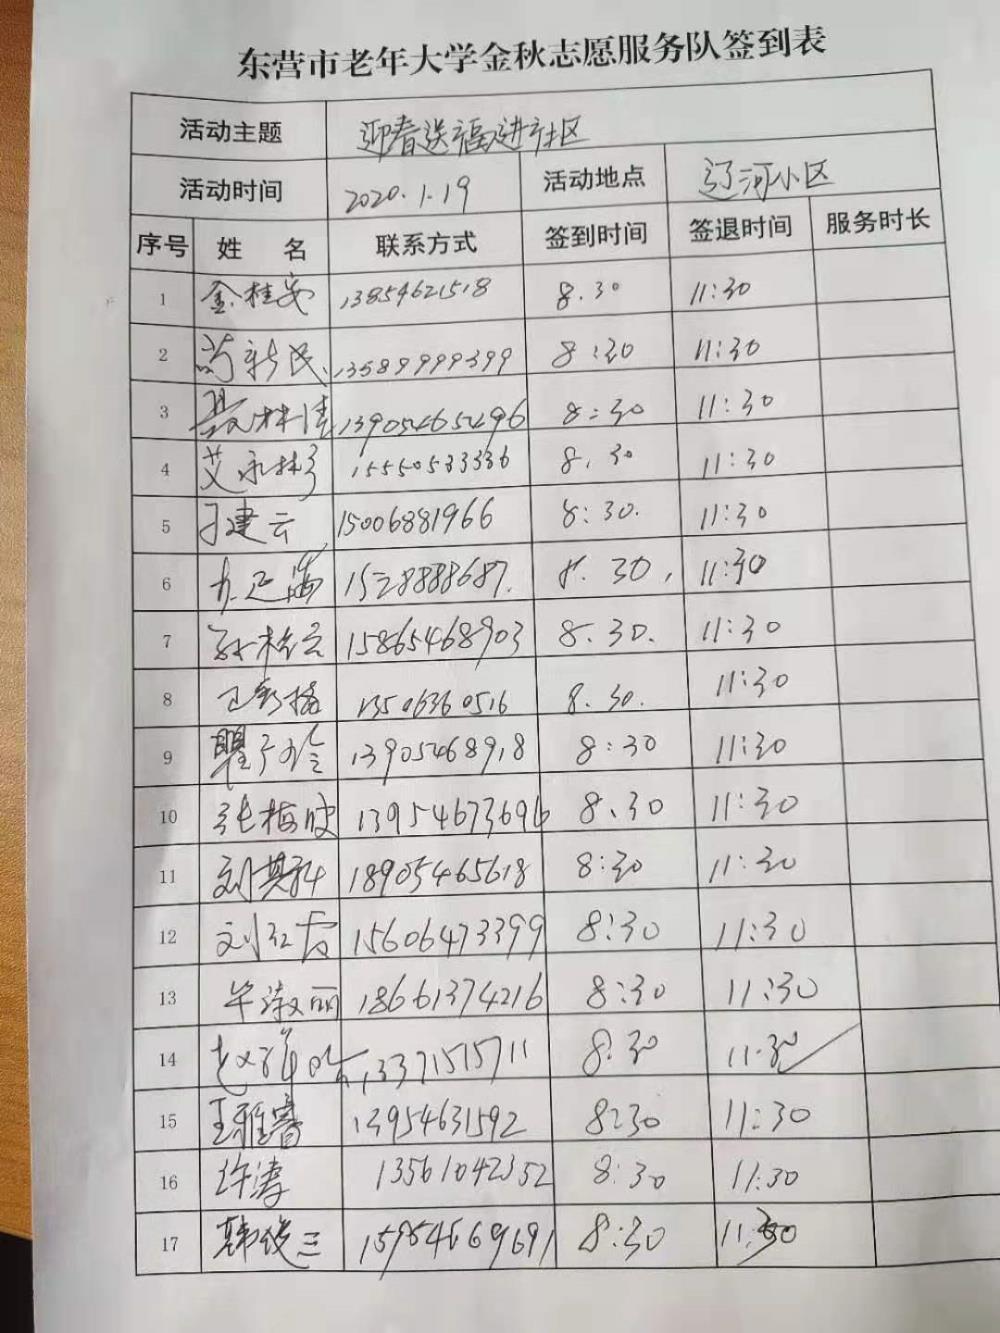 东营市老年大学金秋志愿服务队签到表
活动主题 迎春送福进社区
活动时间 2020.1.19 活动地点 辽河小区
序号 姓 名 联系方式 签到时间 签退时间 服务时长
1 金桂安 13854621518 8.30 11:30
2 新民 13589999399 8:30 11:30
3 聂林清 13905465296 8:30 11:30
4 艾永彬 15550533336 8.30 11:30
5 于建云 15006881966 8:30. 11:30
6 8.30, 11:30
7 孙桂云 15865468903 8.30. 11:30
8 王彩梅 13506360516 8.30. 11:30
9 13905468918 8:30 11:30
10 张梅波 13954673696 8.30 11:30
11 刘其科 18905465618 8:30 11:30
12 刘红霞 15606473399 8:30 11:30
13 毕淑丽 18661374216 8:30 11:30
14 13371515711 8:30 11:30
15 王雅睿 13954631592 8:30 11:30
16 许涛 13561042352 8:30 11:30
17 韩俊三 15954669691 8:30 11:30